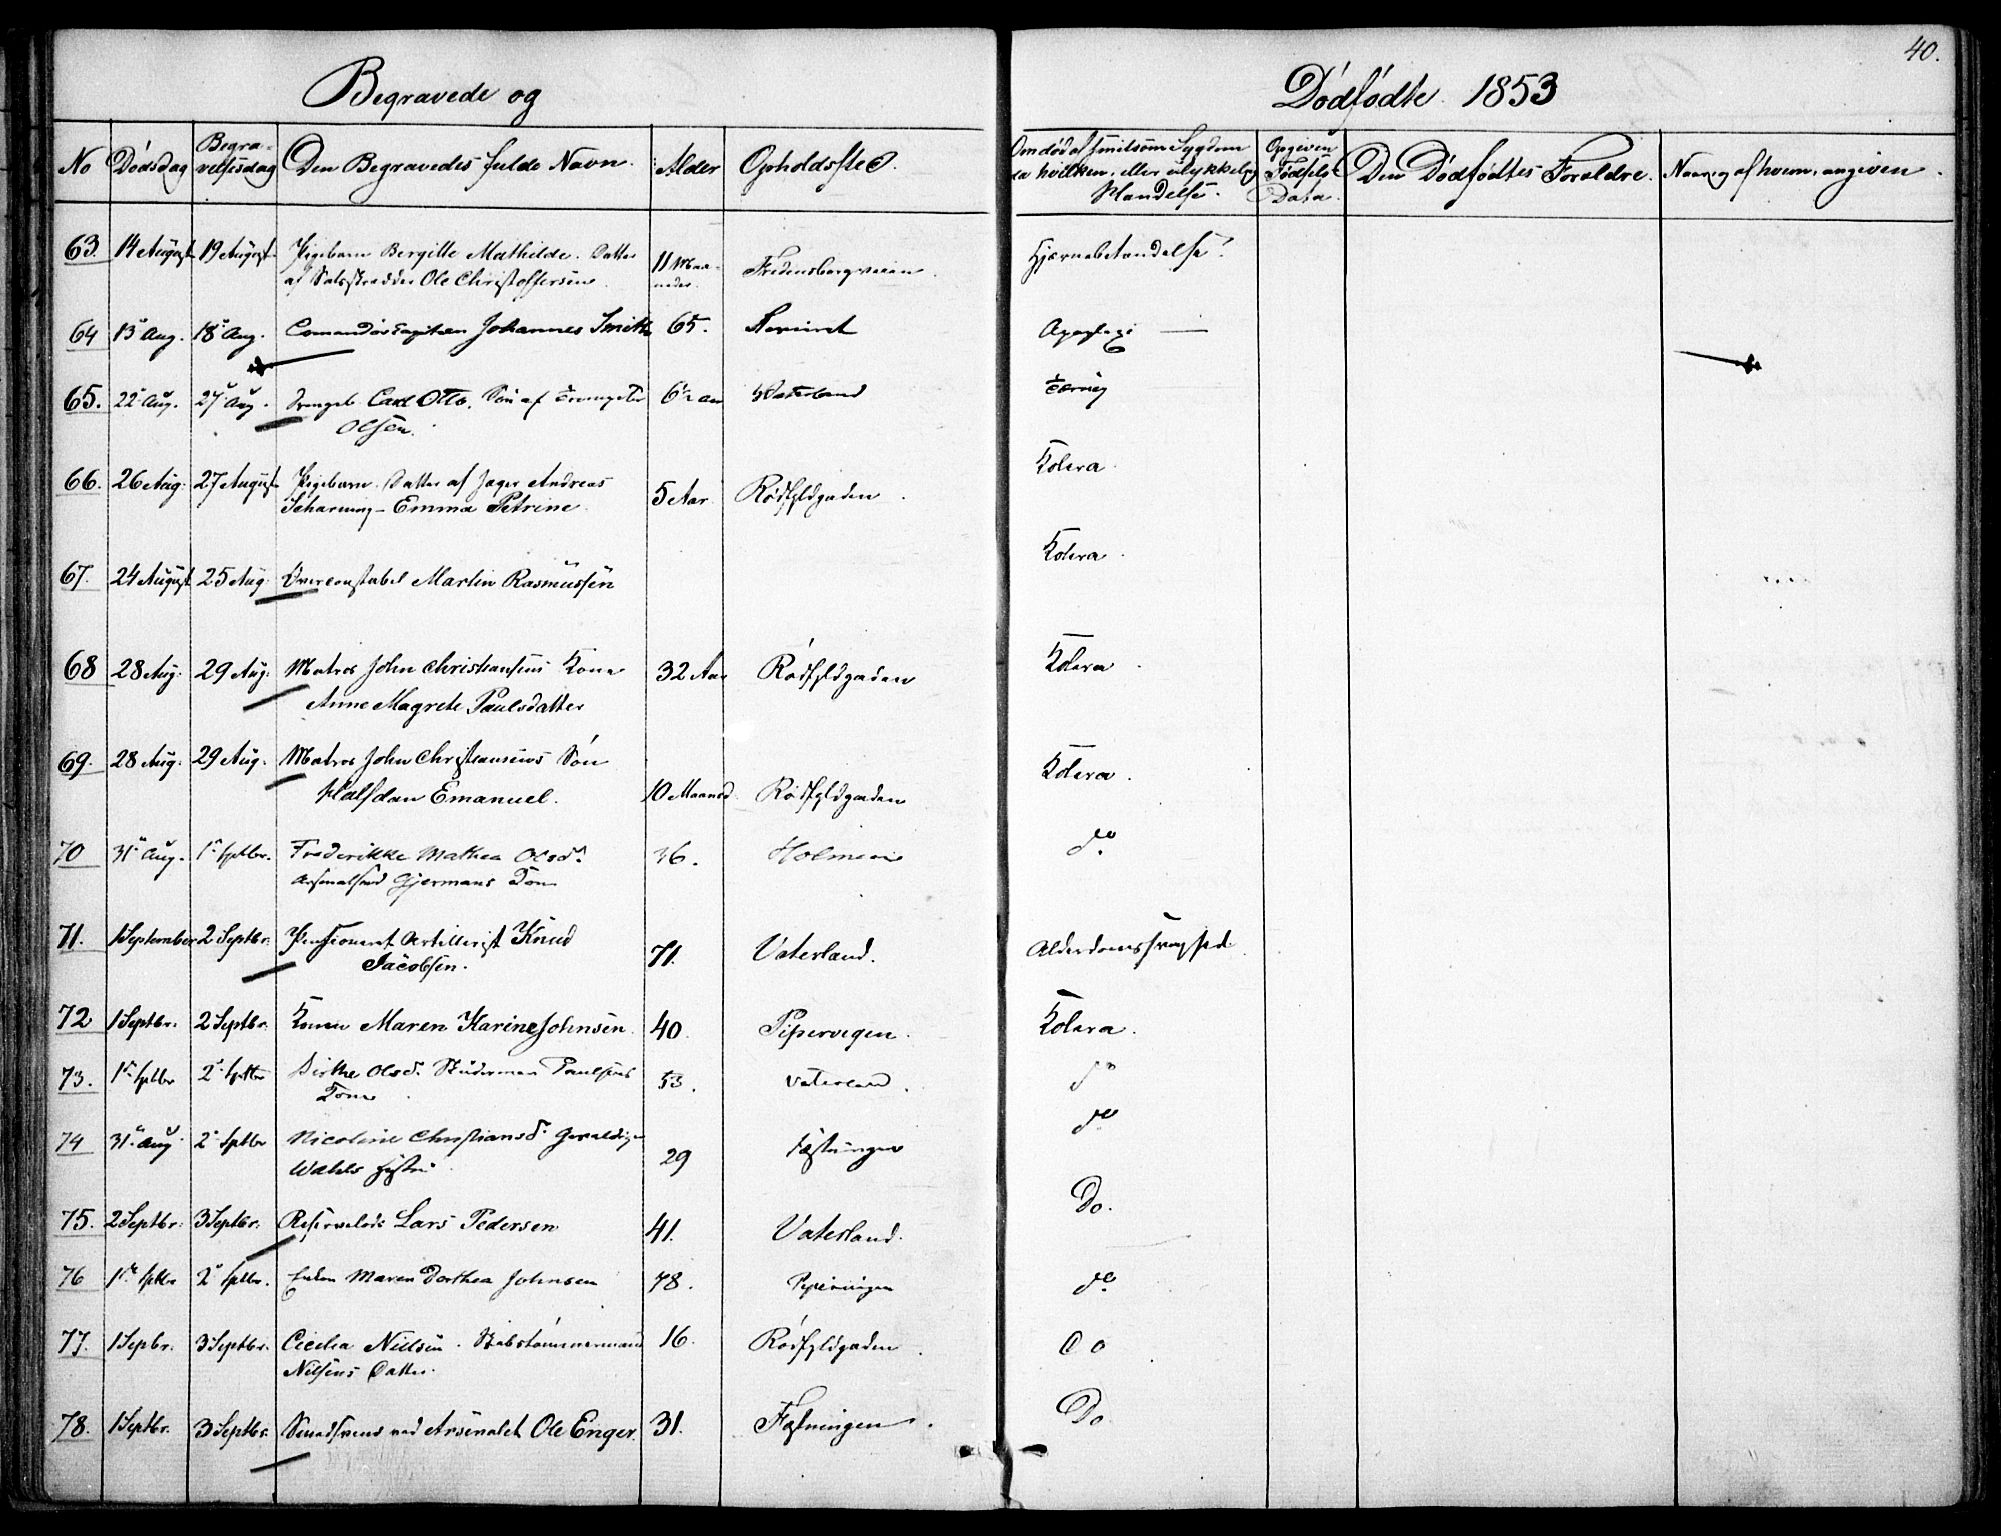 40.
Begravede og Dødfødte 1853
No Dødsdag Begra-velsesdag Den Begravedes fulde Navn. Alder Opholdssted. Om død af smitsom Sygdom da hvilken, eller ulykkelig Hændelse. Opgiven Fødsels Data. Den Dødfødtes Forældre. Naar og af hvem angiven.
63. 14 August 19 August. Pigebarn Bergitte Mathilde. Datter 11 Maa- Fredensborgveien. Hjernebetændelse.
af Ole Christoffersen. neder.
64 13 Aug. 18 Aug. Comandørcapitain Johannes Smith 65. Apoplexi
65. 22 Aug. 27 Aug. Carl Otto. Søn af 6½ aar Waterland Tæring
Olsen.
66. 26 Aug. 27 August Pigebarn. Datter af Jæger Andreas 5 Aar Rødfyldgaden. Kolera
Scharning - Emma Petrine
67. 24 August 25 Aug. Overconstabel Martin Rasmussen Kolera.
68 28 Aug. 29 Aug. Matros John Christiansens Kone 32 Aar Rødfyldgaden Kolera
Anne Magrete Paulsdatter
69. 28 Aug. 29 Aug. Matros John Christiansens Søn
Halfdan Emanuel. 10 Maaned Rødfyldgaden Kolera.
70 31 Aug. 1 Septbr. Frederikke Mathea Olsd. 36. Holmen do
Gjermans Kone
71. 1 September 2 Septbr. Pensioneret Artillerist Knud 71. Vaterland. Alderdomssvaghed.
Jacobsen.
72 1 Septbr. 2 Septbr. Konen Maren Karine Johnsen 40 Pipervigen. Kolera.
73. 1 Septbr 2 Septbr Olsd. Stüderman Paulsens 53. Vaterland. do
Kone
74 31 Aug 2 Septbr Nicoline Christiansd. Gevaldiger 29 Fæstningen do
Wahls Hustru
75. 2 Septbr. 3 Septbr. Lars Pedersen 41. Vaterland. Do.
76 1 Septbr 2 Septbr. Enken Maren Dorthea Johnsen 78. Pipervigen do
77. 1 Sepbr. 3 Septbr. Cecilia Nielsen. Skibstømmermand 16. Rødfyldgaden Do
Nilsens Datter.
78. 1 Septbr. 3 Septbr. Smedsvend ved Arsenalet Ole Enger. 31. Fæstningen. Do